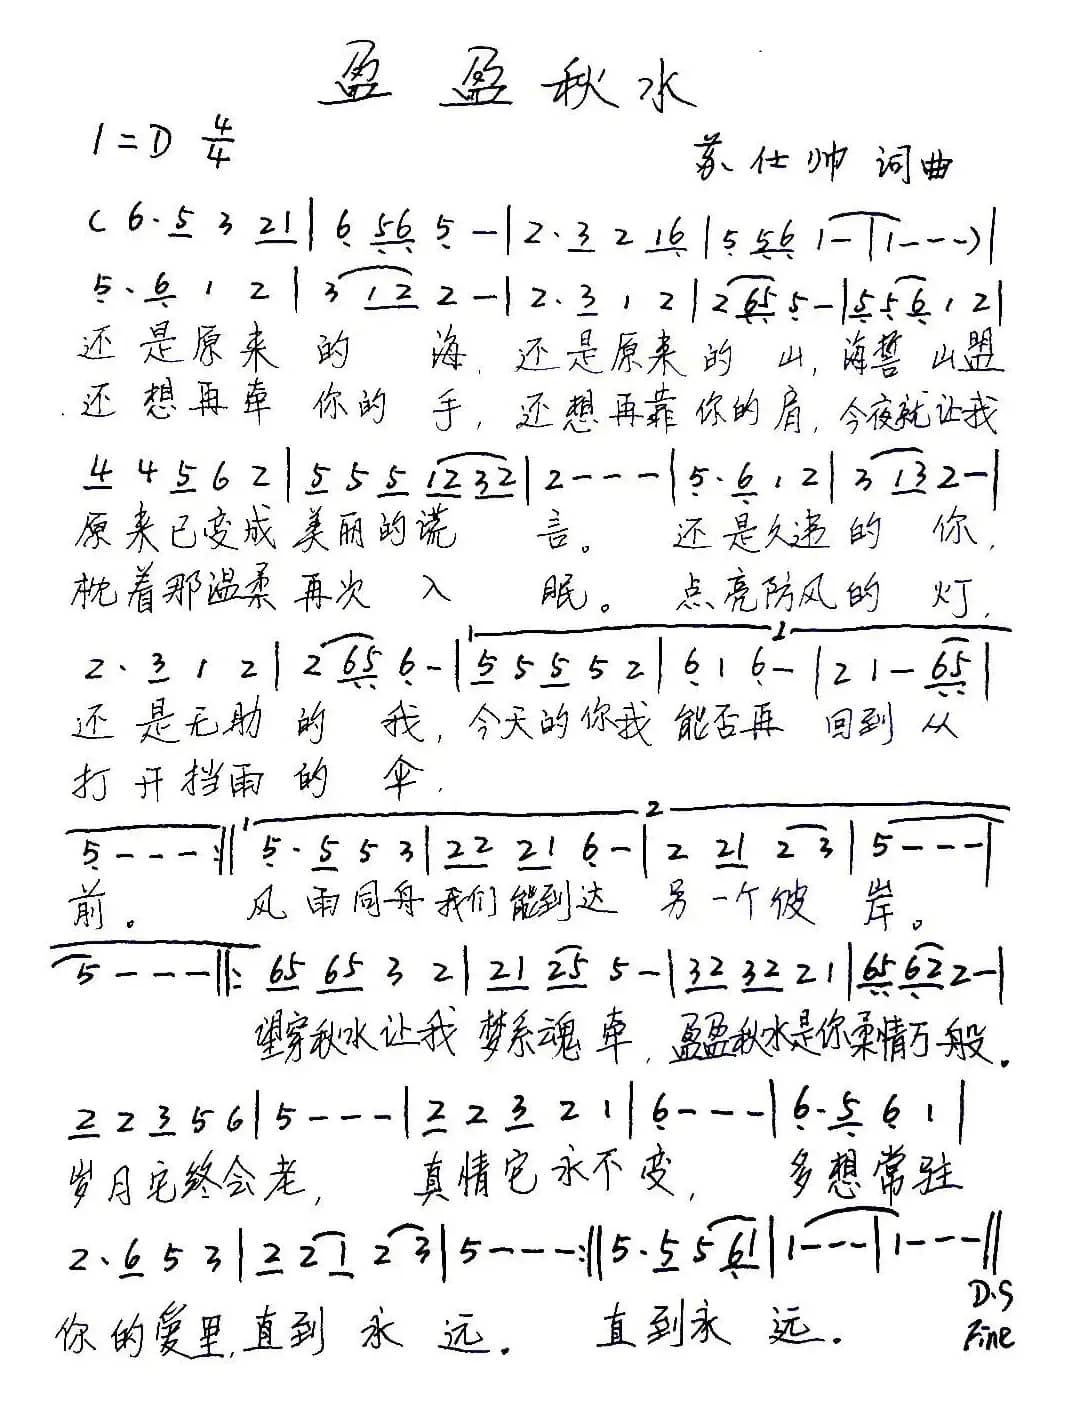 盈盈秋水
1=D 4/4
苏仕帅 词曲
( 6· 5 3 21 | 6 56 5 - | 2· 3 2 16 | 5 56 1 - | 1 - - - ) |
5· 6 1 2 | 3 12 2 - | 2· 3 1 2 | 2 65 5 - | 5 5 6 1 2 |
还是原来的 海, 还是原来的 山, 海誓山盟
还想再牵你的 手, 还想再靠你的肩, 今夜就让我
4 4 5 6 2 | 5 5 5 1232 | 2 - - - | 5· 6 1 2 | 3 13 2 - |
原来已变成美丽的谎 言。 还是久违的 你,
枕着那温柔再次入 眠。 点亮防风的 灯,
1 2
2· 3 1 2 | 2 65 6 - | 5 5 5 5 2 | 6 1 6 - | 2 1 - 65 |
还是无助的 我, 今天的你我能否再 回到从
打开挡雨的 伞.
1 2
5 - - - :|| 5· 5 5 3 | 22 21 6 - | 2 21 2 3 | 5 - - - |
前。 风雨同舟我们能到达 另一个彼 岸。
5 - - - ||: 65 65 3 2 | 21 25 5 - | 32 32 2 1 | 65 62 2 - |
望穿秋水让我梦系魂牵, 盈盈秋水是你柔情万般。
2 2 3 5 6 | 5 - - - | 2 2 3 2 1 | 6 - - - | 6· 5 6 1 |
岁月它终会老, 真情它永不变, 多想常驻
2· 6 5 3 | 2 2 1 2 3 | 5 - - - :|| 5· 5 5 61 | 1 - - - | 1 - - - ||
你的爱里,直到永 远。 直到永 远。
D.S
Fine